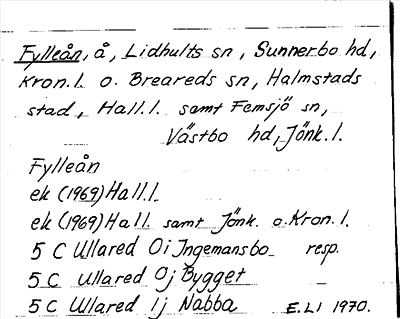 Fylleån, å, Lidhults sn, Sunnerbo hd,
Kron. l. o. Breareds sn, Halmstads
stad, Hall. l. samt Femsjö sn,
Västbo hd, Jönk. l.
Fylleån
ek (1969) Hall.
ek (1969) Hall. samt Jönk. o. Kron. l.
5 C Ullared 0i Ingemansbo resp.
5 C Ullared 0j Bygget
5 C Ullared 1j Nabba E.LI 1970.